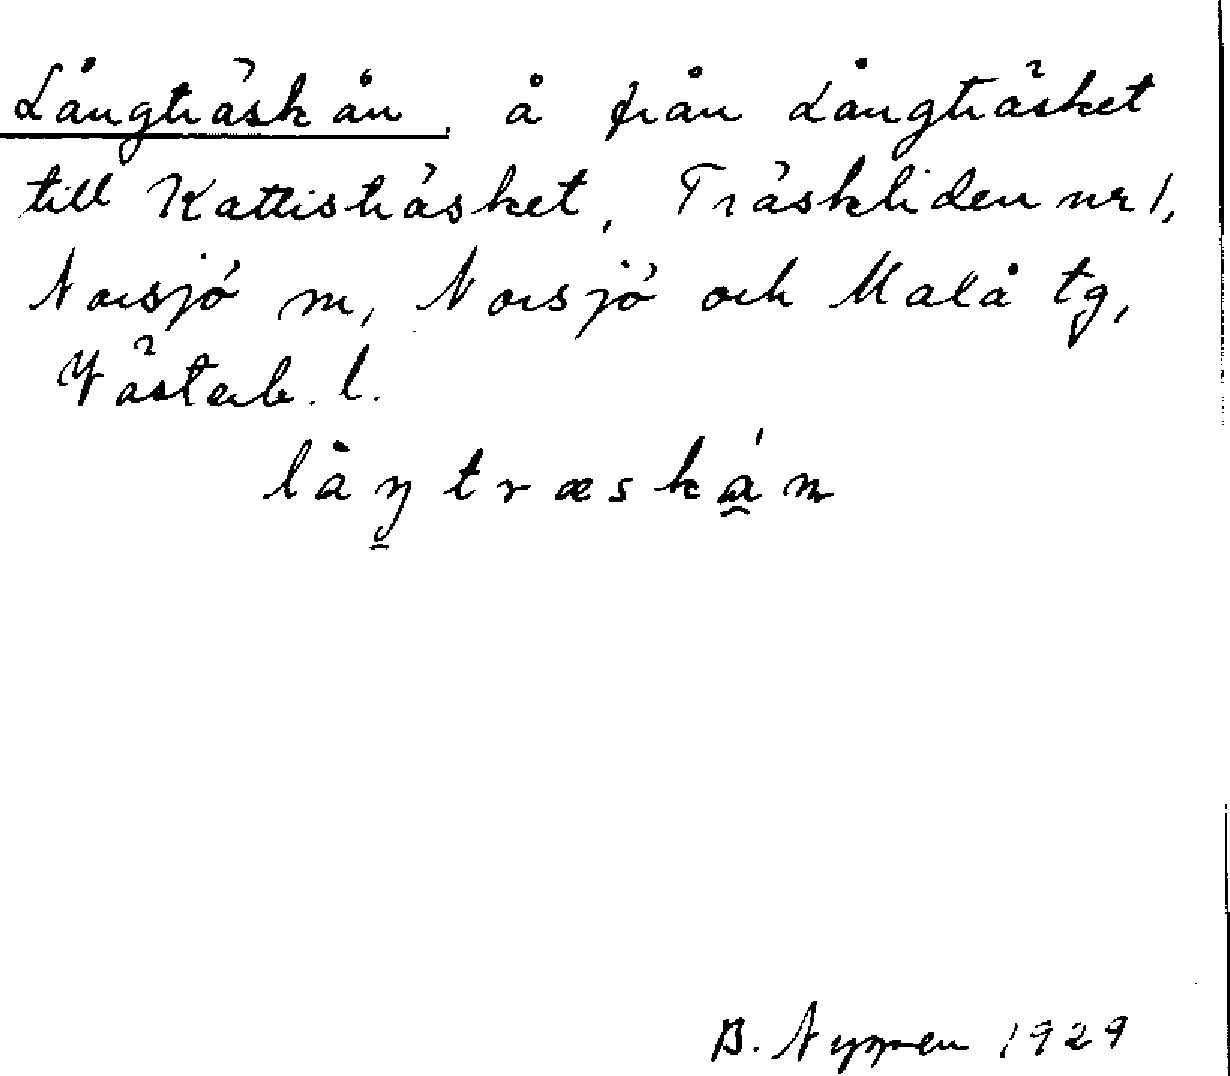 Långträskån, å från Långträsket
till Kattisträsket, Träskliden nr 1,
Norsjö m, Norsjö och Malå tg,
Västerb. l.
låŋtræská̱n
B. Nyman 1929